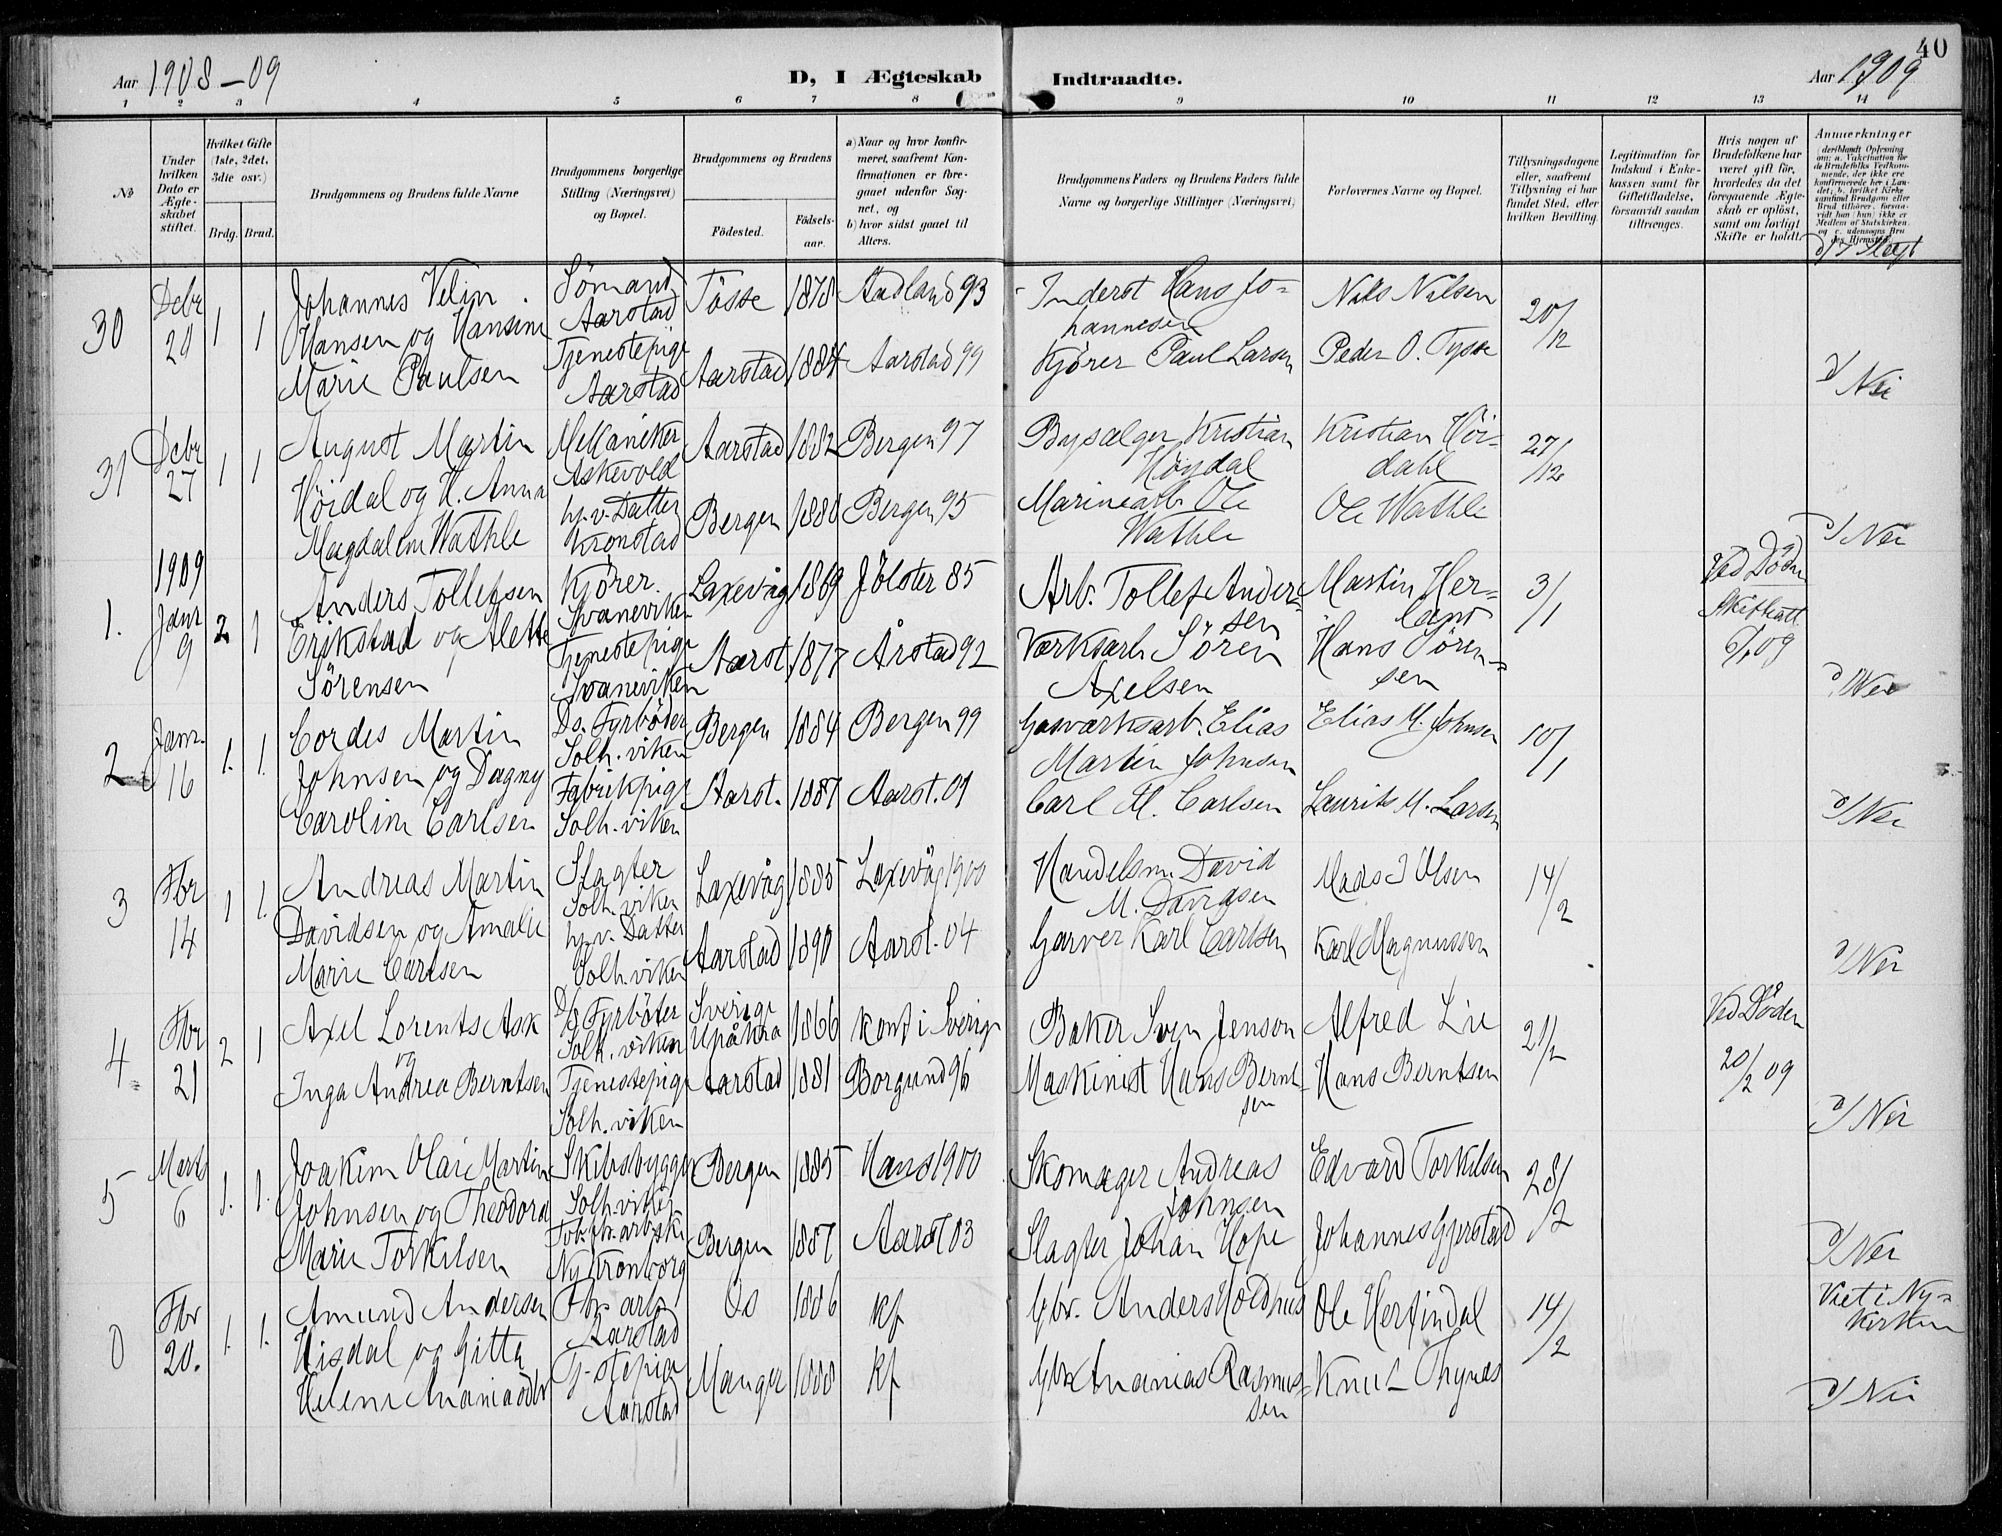 40
Aar 1908-09
D, I Ægteskab
Indtraadte.
Aar 1909
1 2 3 4 5 6 7 8 9 10 11 12 13 14
No
Under hvilken Dato er Ægteskabet stiftet.
Hvilket Gifte (1ste, 2det, 3die osv.)
Brdg. Brud.
Brudgommens og Brudens fulde Navne
Brudgommens borgerlige Stilling (Næringsvei) og Bopæl.
Brudgommens og Brudens
Fødested.
Fødselsaar.
a) Naar og hvor konfirmeret, saafremt Konfirmationen er foregaaet udenfor Sognet, og
b) hvor sidst gaaet til Alters.
Brudgommens Faders og Brudens Faders fulde Navne og borgerlige Stillinger (Næringsvei)
Forlovernes Navne og Bopæl.
Tillysningsdagene eller, saafremt Tillysning ei har fundet Sted, efter hvilken Bevilling.
Legitimation for Indskud i Enkekassen samt for Giftetilladelse, forsaavidt saadan tiltrænges.
Hvis nogen af Brudefolkene har været gift før, hvorledes da det foregaaende Ægteskab er opløst, samt om lovligt Skifte er holdt.
Anmerkninger
d/ I Slegt
30 Debr 20 1 1
Johannes Velin
Hansen og Hansine
Marie Paulsen
Sømand
Aarstad
Tjenestepige
Aarstad
Tösse 1878 Aadland 93
Aarstad 1884 Aarstad 99
Inderst Hans Jo-
hannesen
Kjører Paul Larsen
Nils Nilsen
Peder O. Tysse
20/12
d/ Nei
31 Debr 27 1 1
August Martin
Höidal og H. Anna
Magdalene Wathle
Mekaniker
Askevold
hj.v. Datter
Kronstad
Aarstad 1882 Bergen 97
Bergen 1880 Bergen 95
Bysælger Kristian
Höydal
Marinearb. Ole
Wathle
Kristian Höi-
dahl
Ole Wathle
27/12
d/ Nei
1909
1. Janr 9 2 1
Anders Tollefsen
Erikstad og Alette
Sörensen
Kjörer.
Svaneviken
Tjenestepige
Svaneviken
Laxevåg 1869 Jölster 85
Aarst. 1877 Årstad 92
Arb. Tollef Ander-
sen
Værksarb Sören
Axelsen
Martin Her-
land
Hans Sören-
sen
3/1
Ved Döden
Skifteatt
6/1 09
d/ Nei
2 Janr. 16 1. 1.
Cordes Martin
Johnsen og Dagny
Caroline Carlsen
Ds. Fyrböder
Solh.viken
Fabrikpige
Solh.viken
Bergen 1884 Bergen 99
Aarst. 1887 Aarst. 01
Gasværksarb. Elias
Martin Johnsen
Carl M. Carlsen
Elias M. Johnsen
Laurits M. Larsen
10/1
d/ Nei
3 Fbr 14 1 1.
Andreas Martin
Davidsen og Amalie
Marie Carlsen
Slagter
Solh.viken
hj.v. Datter
Solh.viken
Laxevåg 1885 Laxevåg 1900
Aarstad 1890 Aarst. 04
Handelsm. David
M. Davidsen
Garver Karl Carlsen
Mads I Olsen
Karl Magnussen
14/2
d/ Nei
4 Fbr 21 2 1
Axel Lorents Ask
og
Inga Andrea Berntsen
Ds. Fyrböter
Solh.viken
Tjenestepige
Solh.viken
Sverige
Upåkra 1866 konf i Sverige
Aarstad 1881 Borgund 96
Baker Sven Jenson
Maskinist Hans Bernt-
sen
Alfred Lie
Hans Berntsen
21/2
Ved Döden
20/2 09
d/ Nei
5 Marts 6 1. 1.
Joakim Olai Martin
Johnsen og Theodora
Marie Torkilsen
Skibsbygger
Solh.viken
Ny Kronborg
Bergen 1885 Hans 1900
Bergen 1887 Aarst 03
Skomager Andreas
Johnsen
Slagter Johan Hope
Edvard Torkilsen
Johannes Gjerstad
28/2
d/ Nei
0 Fbr 20. 1. 1.
Amund Andersen
Hisdal og Gitta
Helene Ananiasdtr
Fbr. arb.
Aarstad
Tj-stepige
Aarstad
Os 1886 Kf
Manger 1888 Kf
Gbr. Anders Holdhus
Gbr Ananias Rasmus-
sen
Ole Herfindal
Knut Thynes
14/2
Viet i Ny-
kirken
d/ Nei